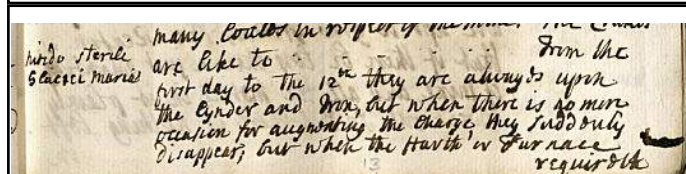 many Coales in respect of the mine. The Coales
are like to . . . . . . . from the
first day to the 12th they are always upon
the Cynder and Iron, but when there is no more
occasion for augmenting the Charge they suddenly
disappear; but when the Harth or Furnace
requireth
sterili
13